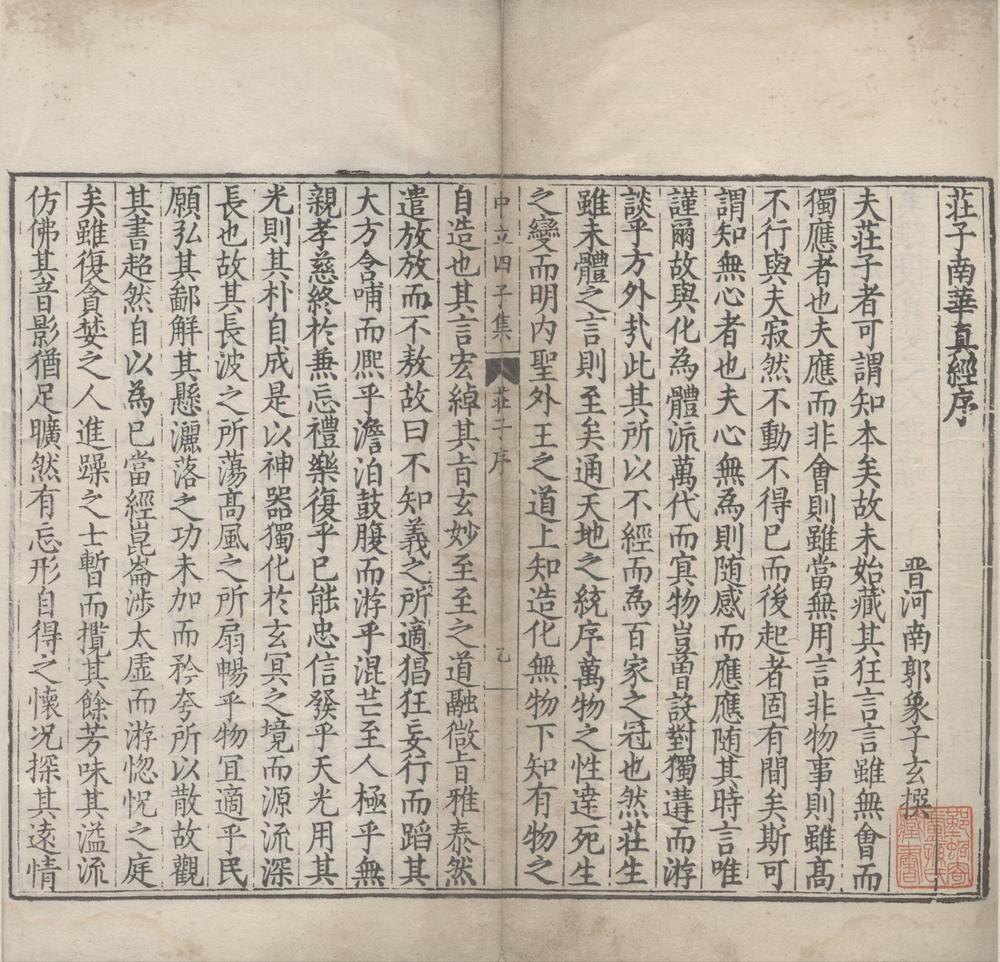 莊子南華真經序
晋河南郭象子玄撰
夫莊子者可謂知本矣故未始藏其狂言言雖無會而
獨應者也夫應而非會則雖當無用言非物事則雖髙
不行與夫寂然不動不得已而後起者固有間矣斯可
謂知無心者也夫心無為則随感而應應随其時言唯
謹爾故與化為體流萬代而冥物豈曽設對獨遘而游
談乎方外㢤此其所以不經而為百家之冠也然莊生
雖未體之言則至矣通天地之統序萬物之性達死生
之變而明内聖外王之道上知造化無物下知有物之
中立四子集
莊子序
乙
一
自造也其言宏綽其旨玄妙至至之道融微旨雅泰然
遣放放而不敖故曰不知義之所適猖狂妄行而蹈其
大方含哺而熈乎澹泊鼓腹而游乎混芒至人極乎無
親孝慈終於兼忘禮樂復乎已能忠信發乎天光用其
光則其朴自成是以神器獨化於玄冥之境而源流深
長也故其長波之所蕩髙風之所扇暢乎物冝適乎民
願弘其鄙解其懸灑落之功未加而矜夸所以散故觀
其書超然自以為已當經崑崙涉太虚而游惚怳之庭
矣雖復貪婪之人進躁之士暫而攬其餘芳味其溢流
仿佛其音影猶足曠然有忘形自得之懐况探其遠情